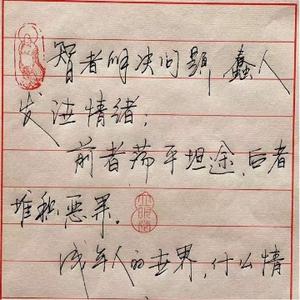 智者解决问题 蠢人
发泄情绪；
前者荡平坦途，后者
堆积恶果。
成年人的世界，什么情